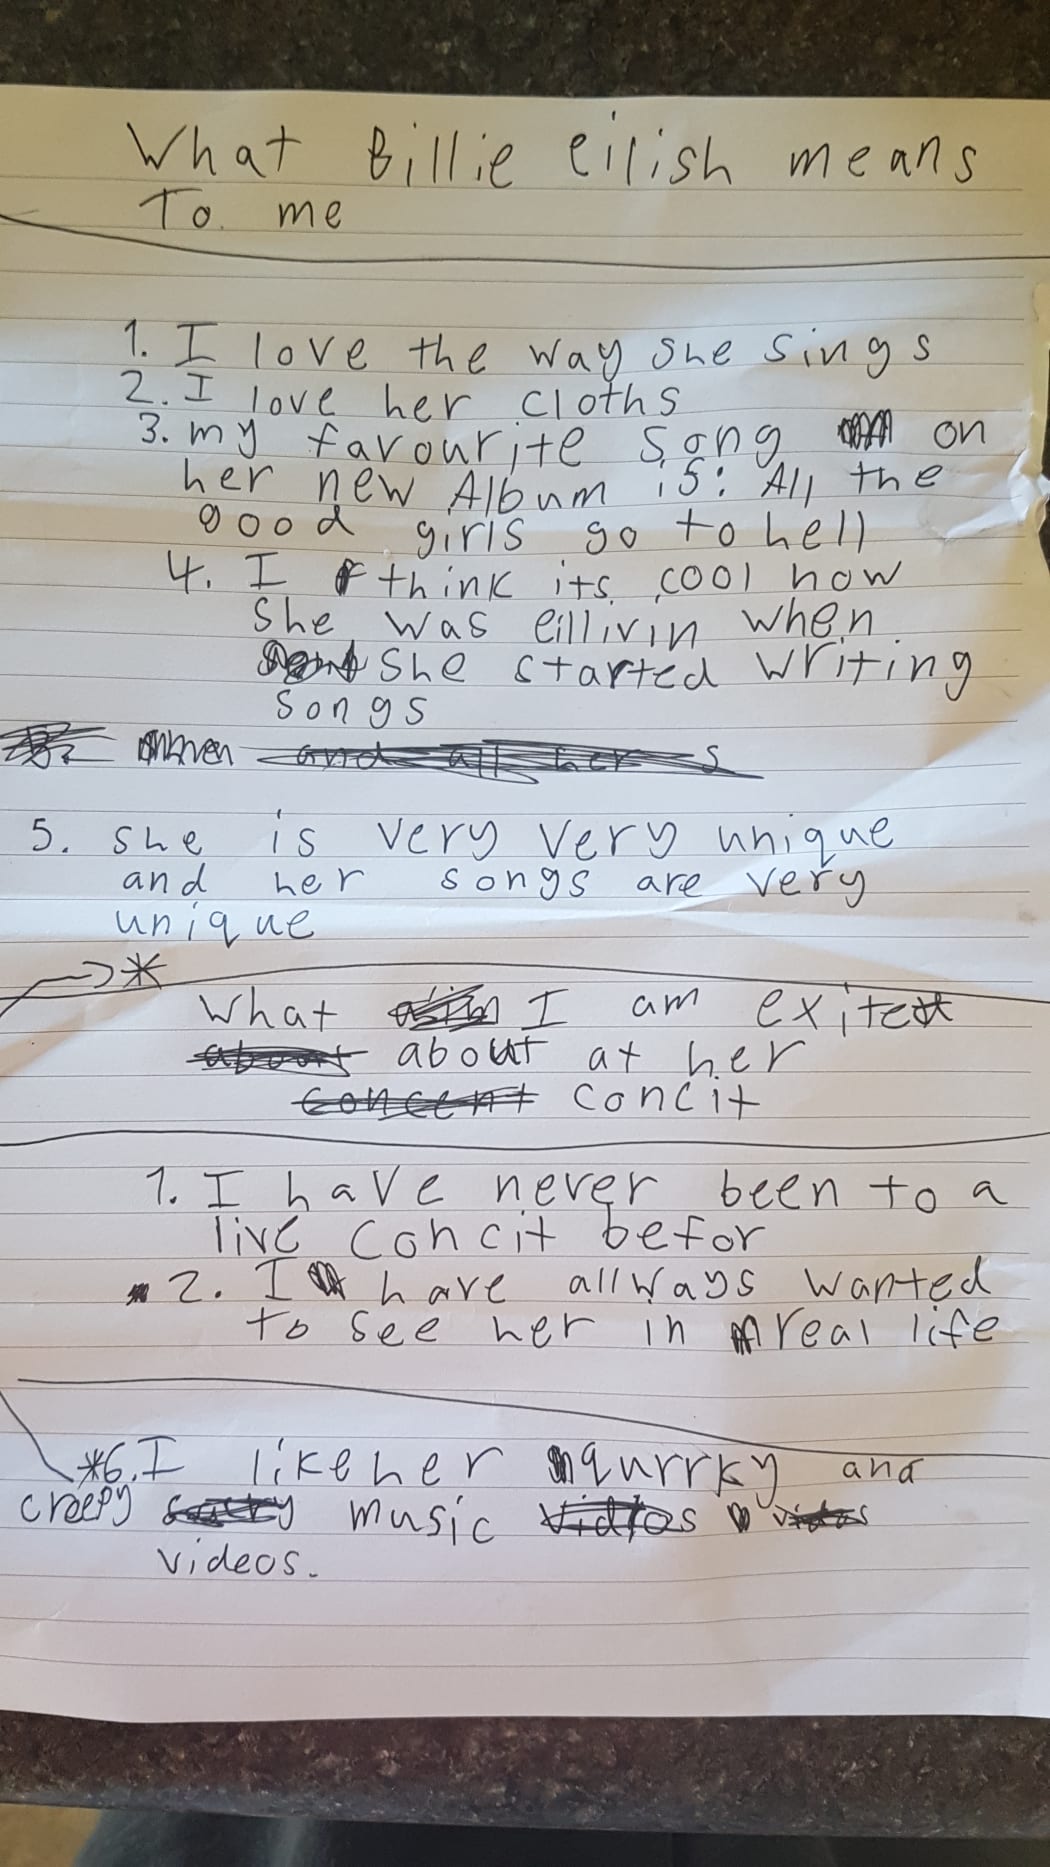 What Billie eilish means
To me
1. I love the way she sings
2. I love her cloths
3. my favourite song on
her new Album is: All the
good girls go to hell
4. I think its cool how
she was eillivin when
she started writing
songs
and all her s
5. she is very very unique
and her songs are very
unique
→*
What I am exited
about about at her
concent concit
1. I have never been to a
live concit befor
2. I have allways wanted
to see her in real life
*6. I like her qurrky and
creepy music
videos.